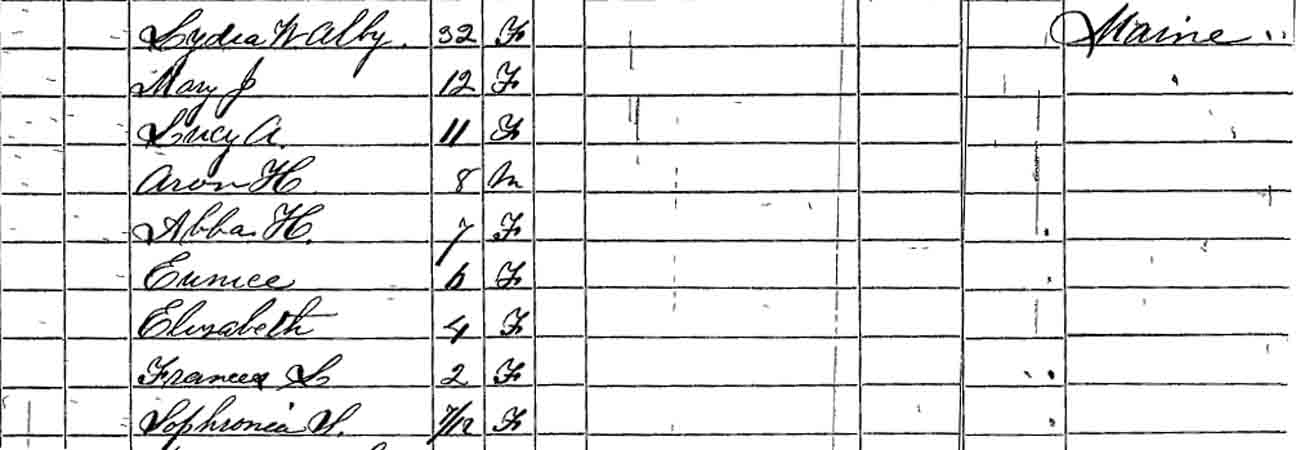 Lydia W Alby. 32 F Maine
Mary J 12 F
Lucy A. 11 F
Aron H 8 M
Abba H. 7 F
Eunice 6 F
Elizabeth 4 F
Frances S 2 F
Sophronia S. 7/12 F